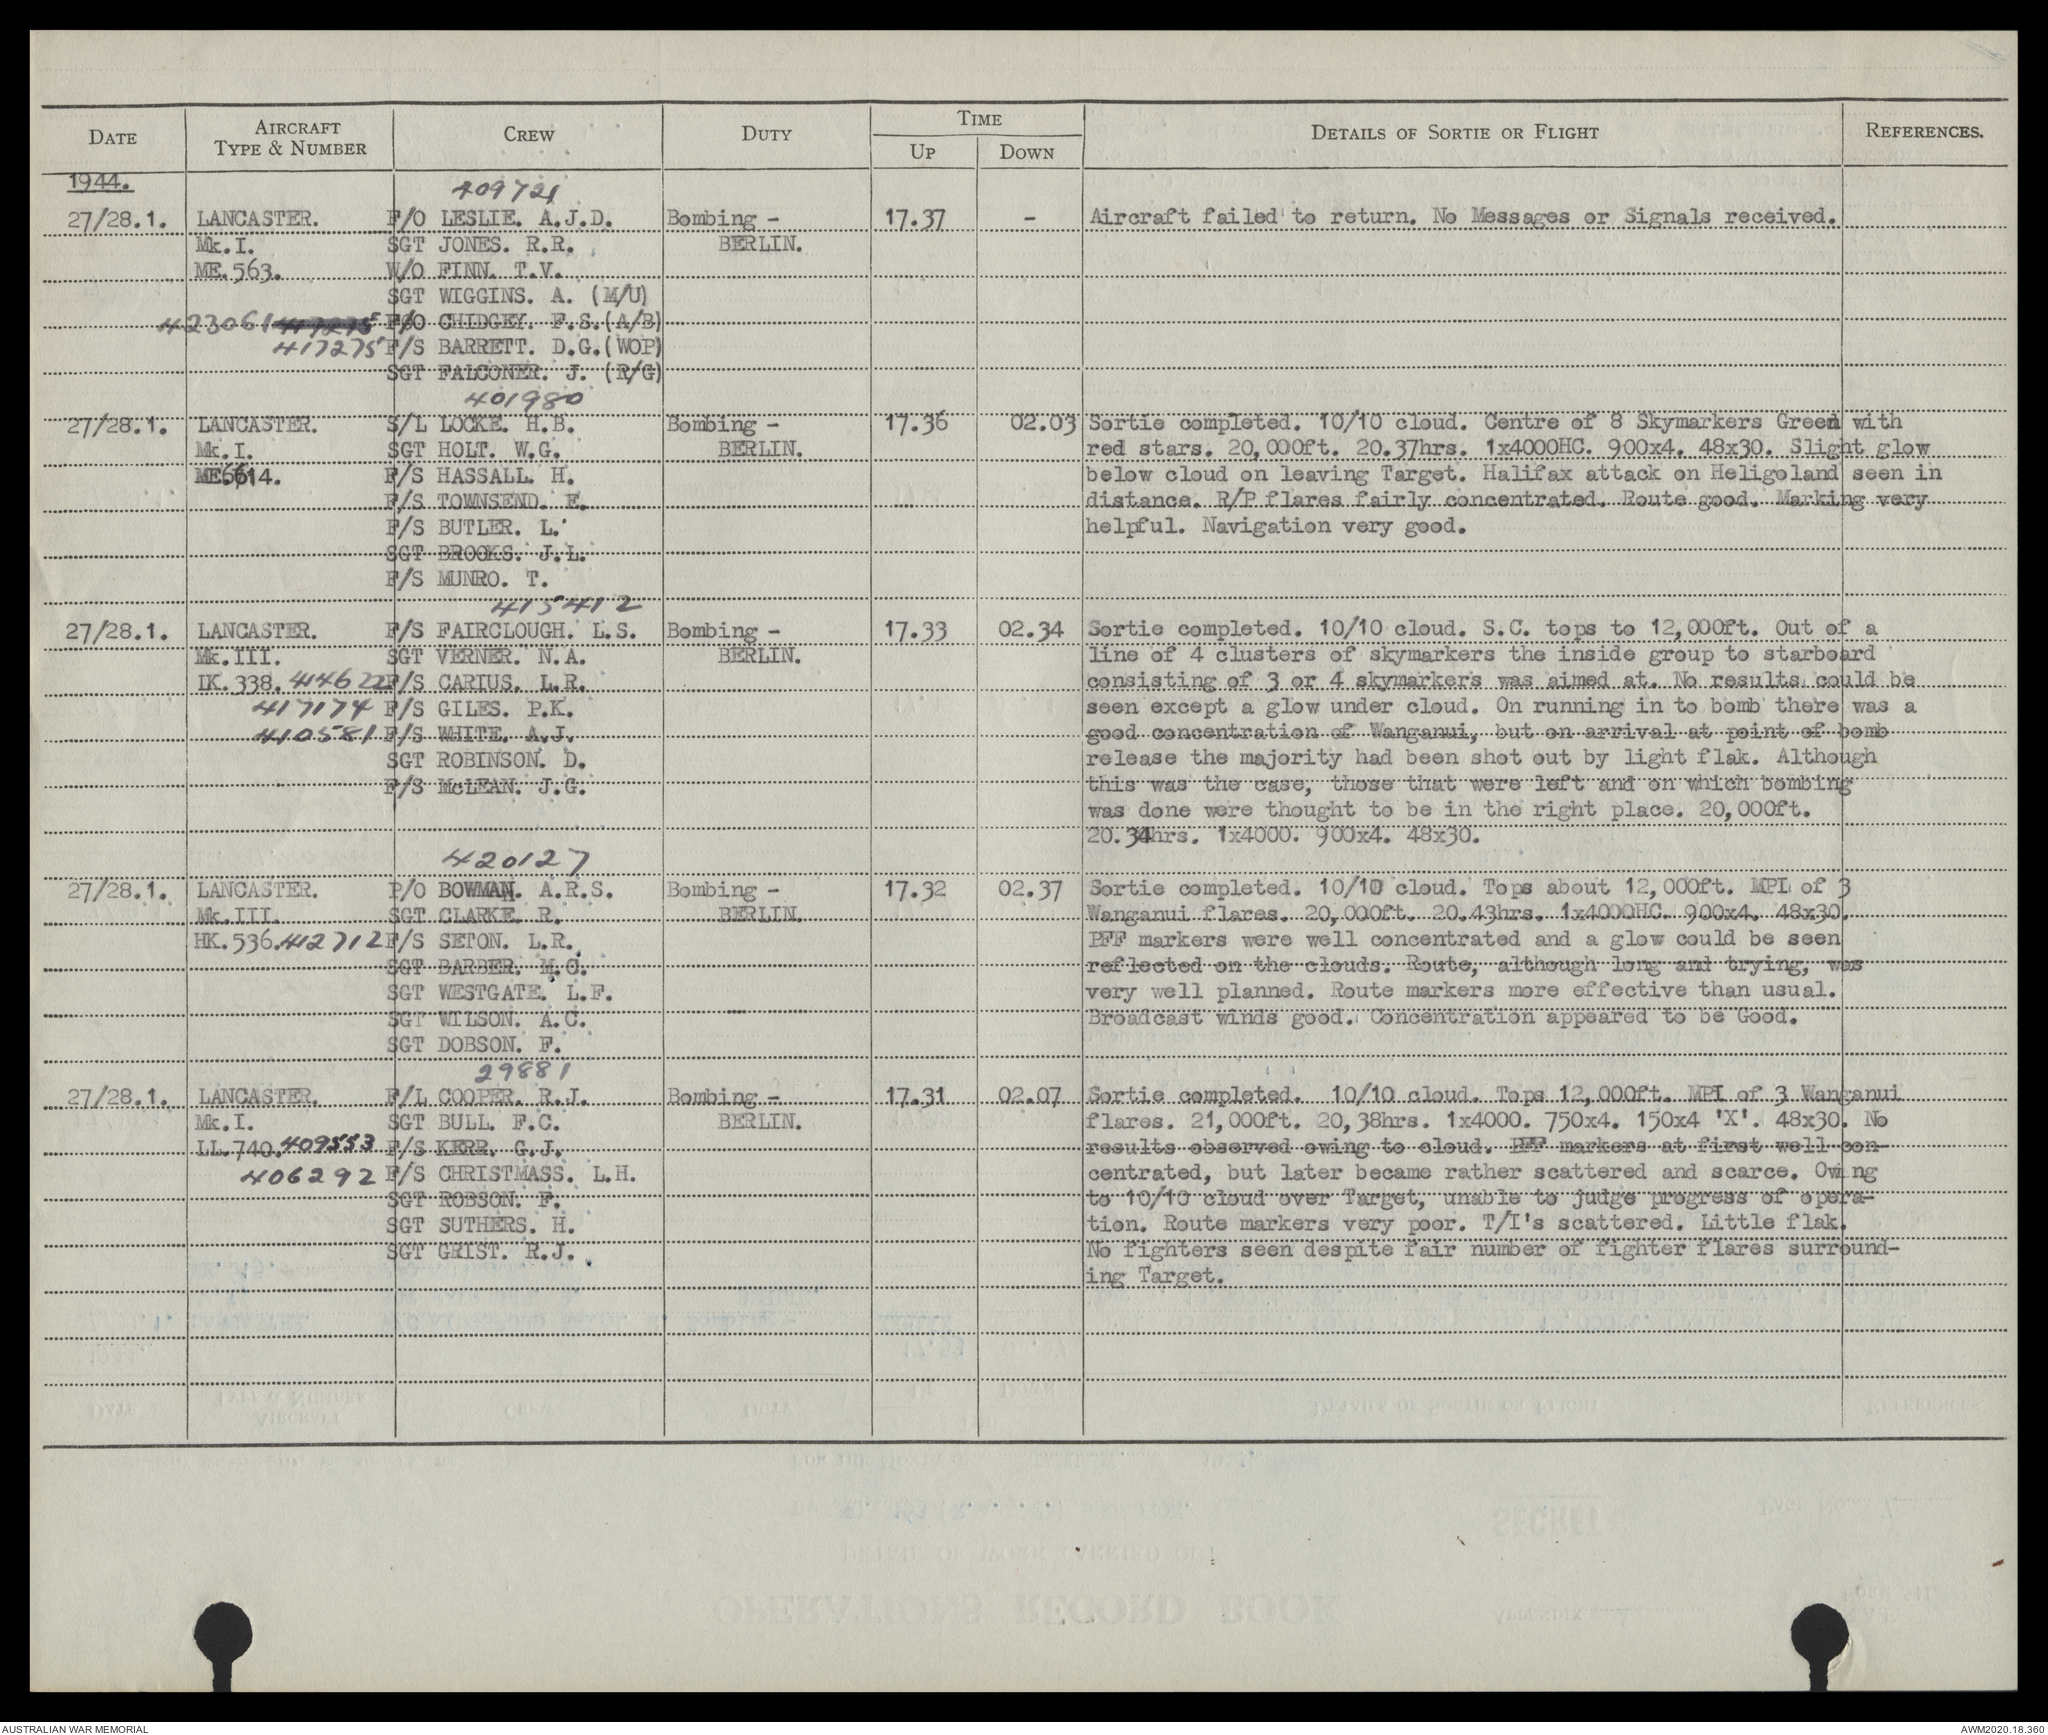 DATE AIRCRAFT TYPE & NUMBER CREW DUTY TIME UP DOWN DETAILS OF SORTIE OR FLIGHT REFERENCES.
1944.
409721
27/28.1. LANCASTER. F/O LESLIE. A.J.D. Bombing - 17.37 - Aircraft failed to return. No Messages or Signals received.
Mk.I. SGT JONES. R.R. BERLIN.
ME.563. W/O FINN. T.V.
SGT WIGGINS. A. (M/U)
423061 F/O CHIDGEY. F.S.(A/B)
417275 F/S BARRETT. D.G.(WOP)
SGT FALCONER. J. (R/G)
401980
27/28.1. LANCASTER. S/L LOCKE. H.B. Bombing - 17.36 02.03 Sortie completed. 10/10 cloud. Centre of 8 Skymarkers Green with
Mk.I. SGT HOLT. W.G. BERLIN. red stars. 20,000ft. 20.37hrs. 1x4000HC. 900x4. 48x30. Slight glow
ME614. F/S HASSALL. H. below cloud on leaving Target. Halifax attack on Heligoland seen in
F/S TOWNSEND. E. distance. R/P flares fairly concentrated. Route good. Marking very
F/S BUTLER. L. helpful. Navigation very good.
SGT BROOKS. J.L.
F/S MUNRO. T.
415412
27/28.1. LANCASTER. F/S FAIRCLOUGH. L.S. Bombing - 17.33 02.34 Sortie completed. 10/10 cloud. S.C. tops to 12,000ft. Out of a
Mk.III. SGT VERNER. N.A. BERLIN. line of 4 clusters of skymarkers the inside group to starboard
IK.338. 414622 F/S CARIUS. L.R. consisting of 3 or 4 skymarkers was aimed at. No results could be
417174 F/S GILES. P.K. seen except a glow under cloud. On running in to bomb there was a
410581 F/S WHITE. A.J. good concentration of Wanganui, but on arrival at point of bomb
SGT ROBINSON. D. release the majority had been shot out by light flak. Although
F/S McLEAN. J.G. this was the case, those that were left and on which bombing
was done were thought to be in the right place. 20,000ft.
20.34hrs. 1x4000. 900x4. 48x30.
420127
27/28.1. LANCASTER. P/O BOWMAN. A.R.S. Bombing - 17.32 02.37 Sortie completed. 10/10 cloud. Tops about 12,000ft. MPI of 3
Mk.III. SGT CLARKE. R. BERLIN. Wanganui flares. 20,000ft. 20.43hrs. 1x4000HC. 900x4. 48x30.
HK.536. 412712 F/S SETON. L.R. PFF markers were well concentrated and a glow could be seen
SGT BARBER. M.C. reflected on the clouds. Route, although long and trying, was
SGT WESTGATE. L.F. very well planned. Route markers more effective than usual.
SGT WILSON. A.C. Broadcast winds good. Concentration appeared to be Good.
SGT DOBSON. F.
29881
27/28.1. LANCASTER. F/L COOPER. R.J. Bombing - 17.31 02.07 Sortie completed. 10/10 cloud. Tops 12,000ft. MPI of 3 Wanganui
Mk.I. SGT BULL. F.C. BERLIN. flares. 21,000ft. 20,38hrs. 1x4000. 750x4. 150x4 'X'. 48x30. No
LL.740. 409553 F/S KERR. G.J. results observed owing to cloud. PFF markers at first well con-
406292 F/S CHRISTMASS. L.H. centrated, but later became rather scattered and scarce. Owing
SGT ROBSON. F. to 10/10 cloud over Target, unable to judge progress of opera-
SGT SUTHERS. H. tion. Route markers very poor. T/I's scattered. Little flak.
SGT GRIST. R.J. No fighters seen despite fair number of fighter flares surround-
ing Target.
AUSTRALIAN WAR MEMORIAL AWM2020.18.360